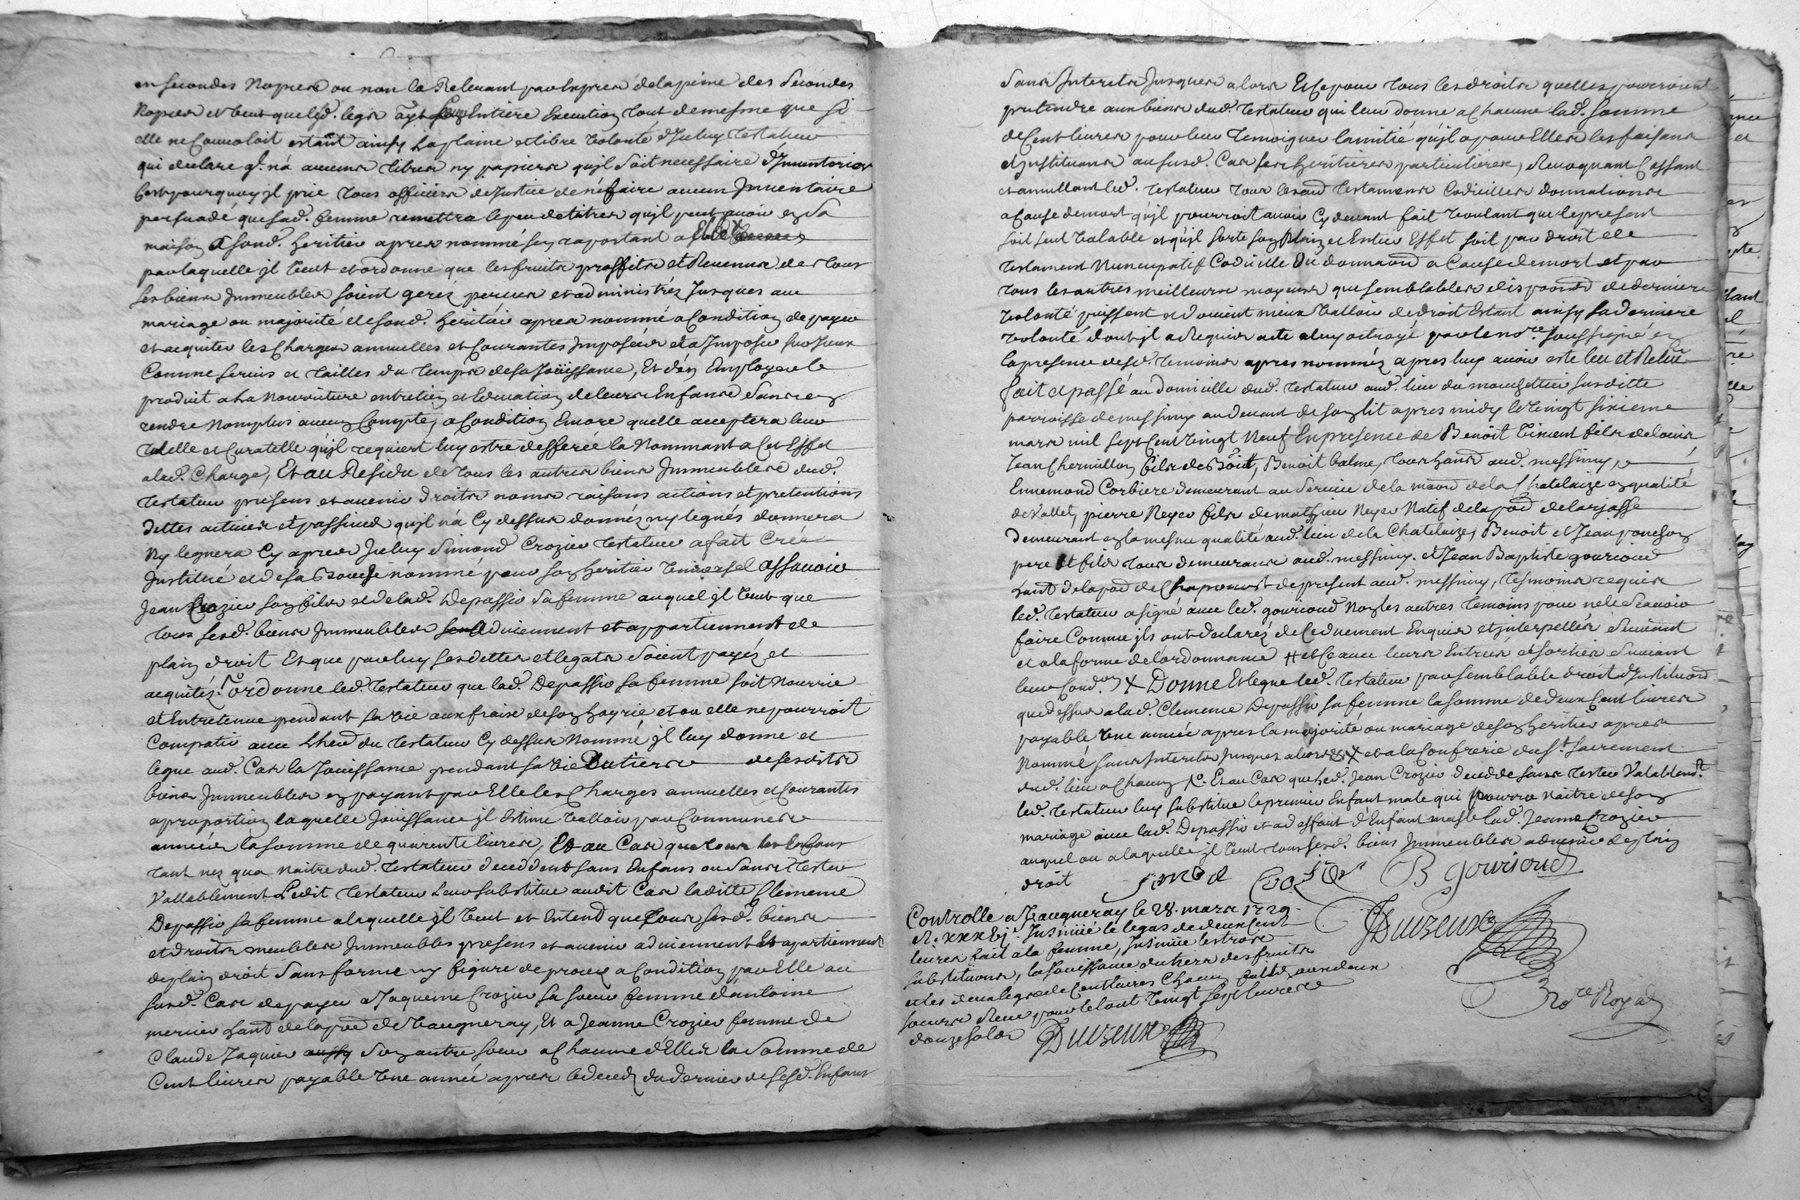 en secondes Nopces ou non la Relevant par expres de la peine des secondes
Nopces et veut que led. legs ayt son Entiere Execution tout de mesme que si
elle ne Convoloit estant ainsy la plaine et libre volonté d'Iceluy testateur
qui declare q. n'a aucuns titres ny papiers qu'jl soit necessaire d'Inventorier
C'est pourquoy jl prie tous officiers de Justice de ne faire aucun Jnventaire
persuadé que sad. femme remettra le peu de titres qu'jl peut avoir en sa
maison A sond. heritier apres nommé s'en raportant a Elle
par laquelle jl veut et ordonne que les fruits proffits et Revenus de tous
ses biens Jmmeubles soient gerez perceus et administrez Jusques au
mariage ou majorité de sond. heritier apres nommé a Condition de payer
et acquiter les Charges annuelles et Courantes Jmposées et a Imposer sur Iceux
Comme servis et tailles du temps de sa Joüissance, Et d'en Employer le
produit a la Nourriture entretien et Education de leurs Enfans sans en
rendre Non plus aucun Compte, a Condition Encore quelle acceptera leur
tutelle et Curatelle qu'jl requiert luy estre defferée la Nommant a Cet Effet
aled. Charge, Et au Residu de tous les autres biens Jmmeubles dud.
testateur presens et avenir droits noms raisons actions et pretentions
dettes actives et passives qu'jl n'a Cy dessus donnéz ny leguéz donnera
Ny leguera Cy apres Jceluy Simond Crozier testateur a fait Creé
Jnstitué et de sa Bouche nommé pour son heritier universel assavoir
Jean Crozier son fils et de lad. Depassio sa femme auquel jl veut que
tous sesd. biens Jmmeubles adviennent et appartiennent de
plain droit Et que par luy ses dettes et legats soient payés et
acquités. ordonne led. testateur que lad. Depassio sa femme soit Nourrie
et Entretenue pendant sa vie aux fraix de son hoyrie et ou elle ne pourroit
Compatir avec L'heritier du testateur Cy dessus Nommé jl luy donne et
legue aud. Cas la Jouissance pendant sa vie du tiers de sesdits
biens Jmmeubles en payant par Elle les Charges annuelles et Courantes
a proportion laquelle Jouissance jl Estime valloir par Commune
année la somme de quarente livres, Et au Cas que tous les Enfans
tant nez qu'a Naitre dud. testateur decedent sans Enfans ou sans tester
Vallablement Ledit testateur leur substitue audit Cas laditte Clemence
Depassio sa femme a laquelle jl veut et Entend que tous sesd. biens
et droits meubles Jmmeubles presens et avenir adviennent et apartiennent
de plain droit sans forme ny figure de proces a Condition par Elle au
susd. Cas de payer a Jaqueme Crozier sa soeur femme d'antoine
mercier hant. de la pred. de vaugneray, Et a Jeanne Crozier femme de
Claude Jaquier son autre soeur a Chacune d'Elles la somme de
Cent livres payable une année apres le deced du dernier de sesd. Enfans
sans Interets Jusques alors Et Ce pour tous les droits quelles pourroient
pretendre aux biens dud. testateur qui leur donne a Chacune lad. somme
de Cent livres pour leur temoigner l'amitié qu'jl a pour Elles les faisans
et Jnstituans au susd. Cas ses heritieres particulieres, Revoquant Cassant
et annullant led. testateur tous les autres testamens Codicilles donnations
a Cause de mort qu'jl pourroit avoir Cy devant fait voulant que le present
soit seul valable et qu'jl sorte son plein et Entier Effet soit par droit de
testament Nuncupatif Codicille ou donnaon a Cause de mort et par
tous les autres meilleurs moyens que semblables dispositions de derniere
volonté puissent et doivent mieux valloir de droit Estant ainsy sa derniere
volonté dont jl a Requis acte a luy octroyé par le no.re soussigné en
la presence desd. temoins apres nommés apres luy avoir esté leu et Releu
fait et passé au domicille dud. testateur aud. lieu du marchettier susditte
parroisse de messimy au devant de son lit apres midy le vingt sixieme
mars mil sept Cent vingt Neuf En presence de Benoit Vincent fils de Loüis
Jean Chermillon fils de Benoit, Benoit balme, tous hants. aud. messimy,
Ennemond Corbiere demeurant au Service de la maison de la Chatelaize en qualité
de Vallet, pierre Neyer fils de mathieu Neyer Natif de la pod. de larjasse
demeurant en la mesme qualité aud. lieu de la Chatelaize, Benoit et Jean ponson
pere et fils tous demeurans aud. messimy. et Jean Baptiste gouvioud
hant. de la pod de Chaponost de present aud. messimy, tesmoins requis
led. testateur a signé avec led. gouvioud Non les autres temoins pour ne le scavoir
faire Comme jls ont declarés de Ce duement Enquis et Interpellés suivant
et a la forme de l'ordonnance # et Ce avec leurs Entrées et sorties suivant
leur Cond.on X Donne et legue led. testateur par semblable droit d'Institution
que dessus a lad. Clemence Depassio sa femme la somme de deux Cent livres
payable une année apres la majorité ou mariage de son heritier apres
Nommé sans Interets Jusques alors X et a la Confrerie du St. Sacrement
dud. lieu Et au Cas que led. Jean Crozier decede sans tester Valablem.t
led. testateur luy substitue le premier Enfant male qui pourra Naitre de son
mariage avec lad. Depassio et ad effaut d'Enfant masle lad. Jeanne Crozier
auquel ou a laquelle jl veut tous sesd. biens Jmmeubles advenir de plain
droit Simond Crozier B gouvioud
Duvzeux
No.re Royal
Controllé a Vaugneray le 28. mars 1729
Insinué le legas de deux Cent
livres fait a la femme, Insinué les trois
substitutions, la Jouissance du tiers des fruits
et les deux legs de Cent livres Chacun faits aux deux
soeurs Receu pour le tout vingt sept livres
douze sols Duvzeux